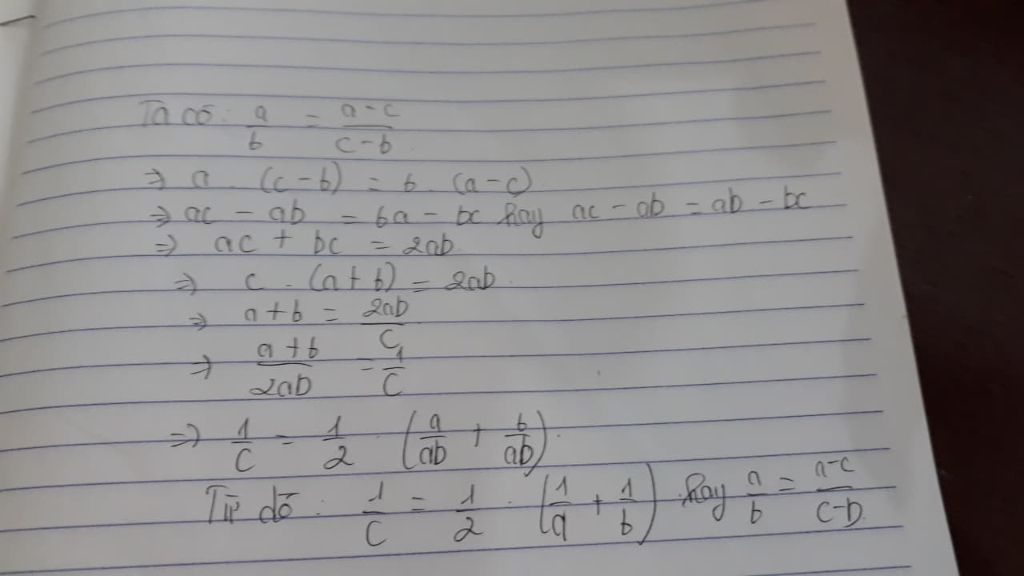 Ta có: a/b = a-c/c-b
⇒ a . (c-b) = b . (a-c)
⇒ ac - ab = ba - bc hay ac - ab = ab - bc
⇒ ac + bc = 2ab
⇒ c . (a+b) = 2ab
⇒ a+b = 2ab/c
⇒ a+b/2ab = 1/c
⇒ 1/c = 1/2 . (a/ab + b/ab).
Từ đó : 1/c = 1/2 . (1/a + 1/b) hay a/b = a-c/c-b